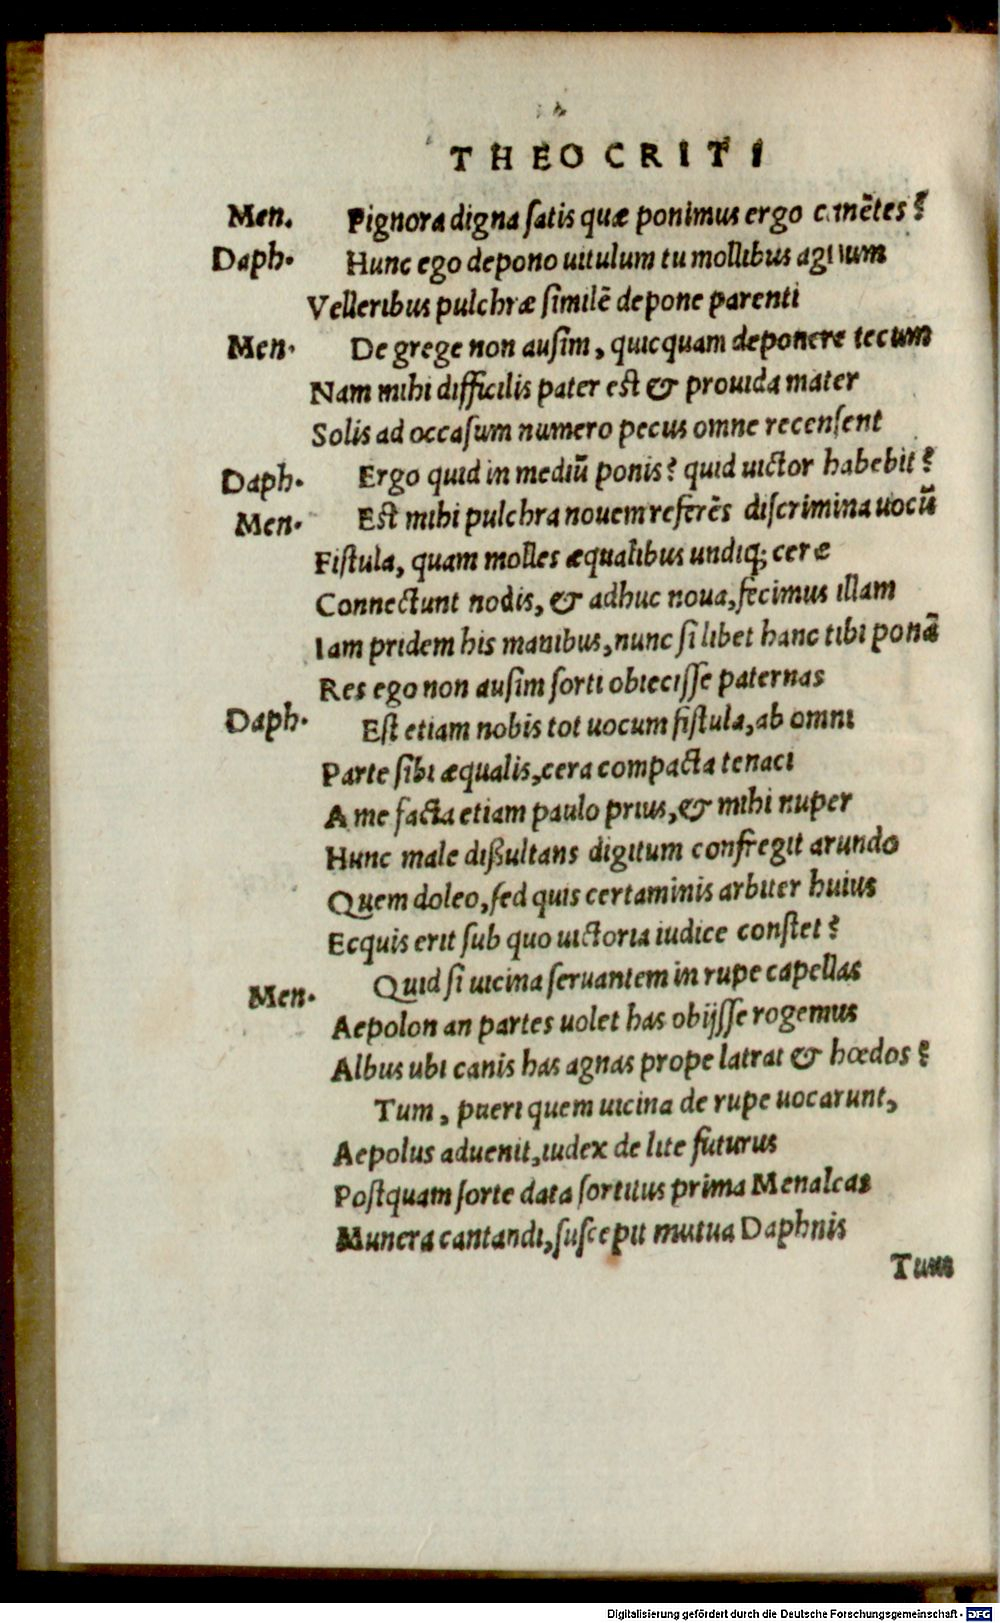 THEOCRITI
Men. Pignora digna satis quæ ponimus ergo canẽtes?
Daph. Hunc ego depono uitulum tu mollibus agnum
Velleribus pulchræ similẽ depone parenti
Men. De grege non ausim, quicquam deponere tecum
Nam mihi difficilis pater est & prouida mater
Solis ad occasum numero pecus omne recensent
Daph. Ergo quid in mediũ ponis? quid uictor habebit?
Men. Est mihi pulchra nouem referẽs discrimina uocũ
Fistula, quam molles æqualibus undiq; ceræ
Connectunt nodis, & adhuc noua, fecimus illam
Iam pridem his manibus, nunc si libet hanc tibi ponã
Res ego non ausim sorti obiecisse paternas
Daph. Est etiam nobis tot uocum fistula, ab omni
Parte sibi æqualis, cera compacta tenaci
A me facta etiam paulo prius, & mihi nuper
Hunc male dißultans digitum confregit arundo
Quem doleo, sed quis certaminis arbiter huius
Ecquis erit sub quo uictoria iudice constet?
Men. Quid si uicina seruantem in rupe capellas
Aepolon an partes uolet has obijsse rogemus
Albus ubi canis has agnas prope latrat & hœdos?
Tum, pueri quem uicina de rupe uocarunt,
Aepolus aduenit, iudex de lite futurus
Postquam sorte data sortitus prima Menalcas
Munera cantandi, suscepit mutua Daphnis
Tum
Digitalisierung gefördert durch die Deutsche Forschungsgemeinschaft - DFG